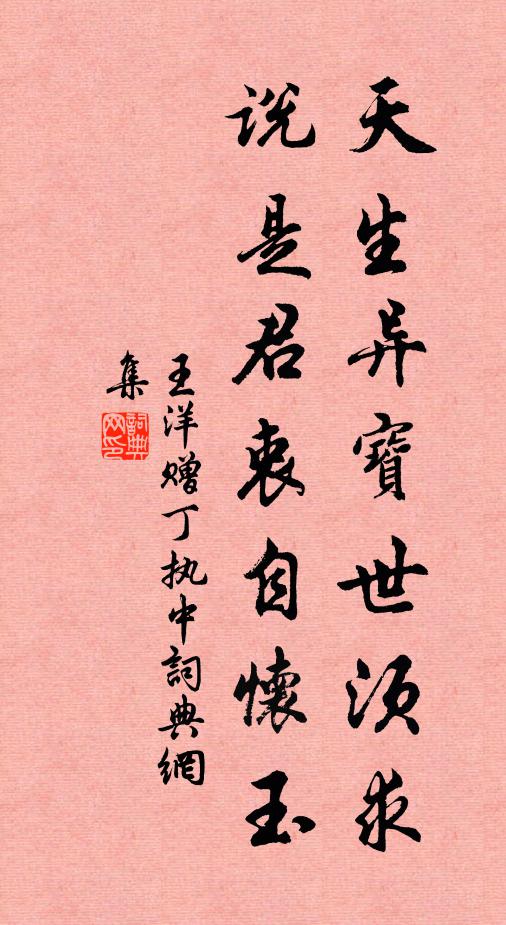 天生异寶世须求
说是君衷自懷玉
王洋赠丁执中詞典網
集
詞典
网印